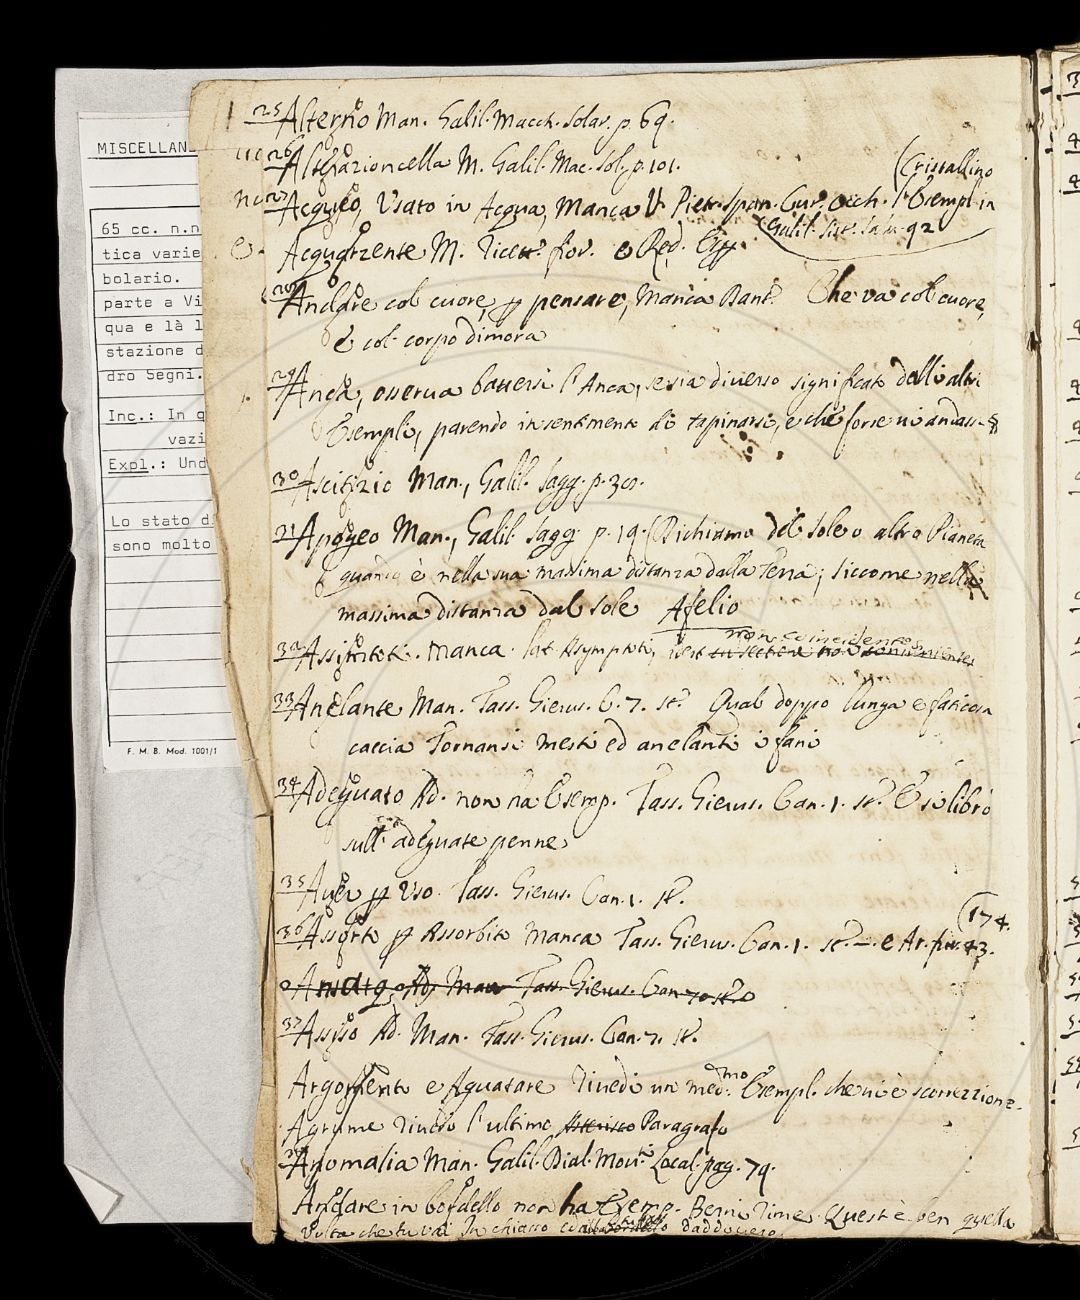 MISCELLAN
65 cc. n.n
tica varie
bolario.
parte a Vi
qua e là l
stazione d
dro Segni.
Inc.: In q
vazi
Expl.: Und
Lo stato d
sono molto
F. M. B. Mod. 1001/1
25 Alterno Man. Galil. Macch. Solar. p. 69.
26 M. Galil. Mac. sol. p. 101.
27 Acqueo, Usato in Acqua, Manca V. Pietr. Span. Cur. Occh. l'Esempl. in
(Cristallino
Galil. 92
Acquarzente M. Ricett. fior. e Red.
28 Andare col cuore, p pensare, Manca Dant. Che va col cuore,
e col corpo dimora
29 Anca, osserva battersi l'Anca, se sia diverso significato dalli altri
Esempli, parendo in sentimento di tapinarsi, e che forse vi andass
30 Ascitizio Man., Galil. Sagg. p. 30.
31 Apogeo Man., Galil. Sagg. p. 19. (Richiamo del Sole o altro Pianeta
quando è nella sua massima distanza dalla Terra; siccome nella
massima distanza dal sole Afelio
non coincidentes
32 Assintoti. Manca. lat. Asymptoti,
33 Anelante Man. Tass. Gierus. C. 7. st. Qual doppo lunga e faticosa
caccia Tornansi mesti ed anelanti i fani
34 Adeguato Ad. non ha Esemp. Tass. Gierus. Can. 1. st. E si librò
sull' adeguate penne
35 Aver p Uso. Tass. Gierus. Can. 1. st.
(174.
36 Assorto p Assorbito Manca Tass. Gierus. Can. 1. st. — . e Ar. fur. 43.
Man Tass. Gierus. Can. st.
37 Assiso Ad. Man. Tass. Gierus. Can. 7. st.
Argomento e Aguatare rivedi un med.mo Esempl. che vi è scorrezzione.
Agrume rivedi l'ultimo Paragrafo
Anomalia Man. Galil. Dial. Mov. Local. pag. 79.
Andare in bordello non ha Esemp. Berni Rime. Quest'è ben quella
Volta che tu vai In chiasso daddovero